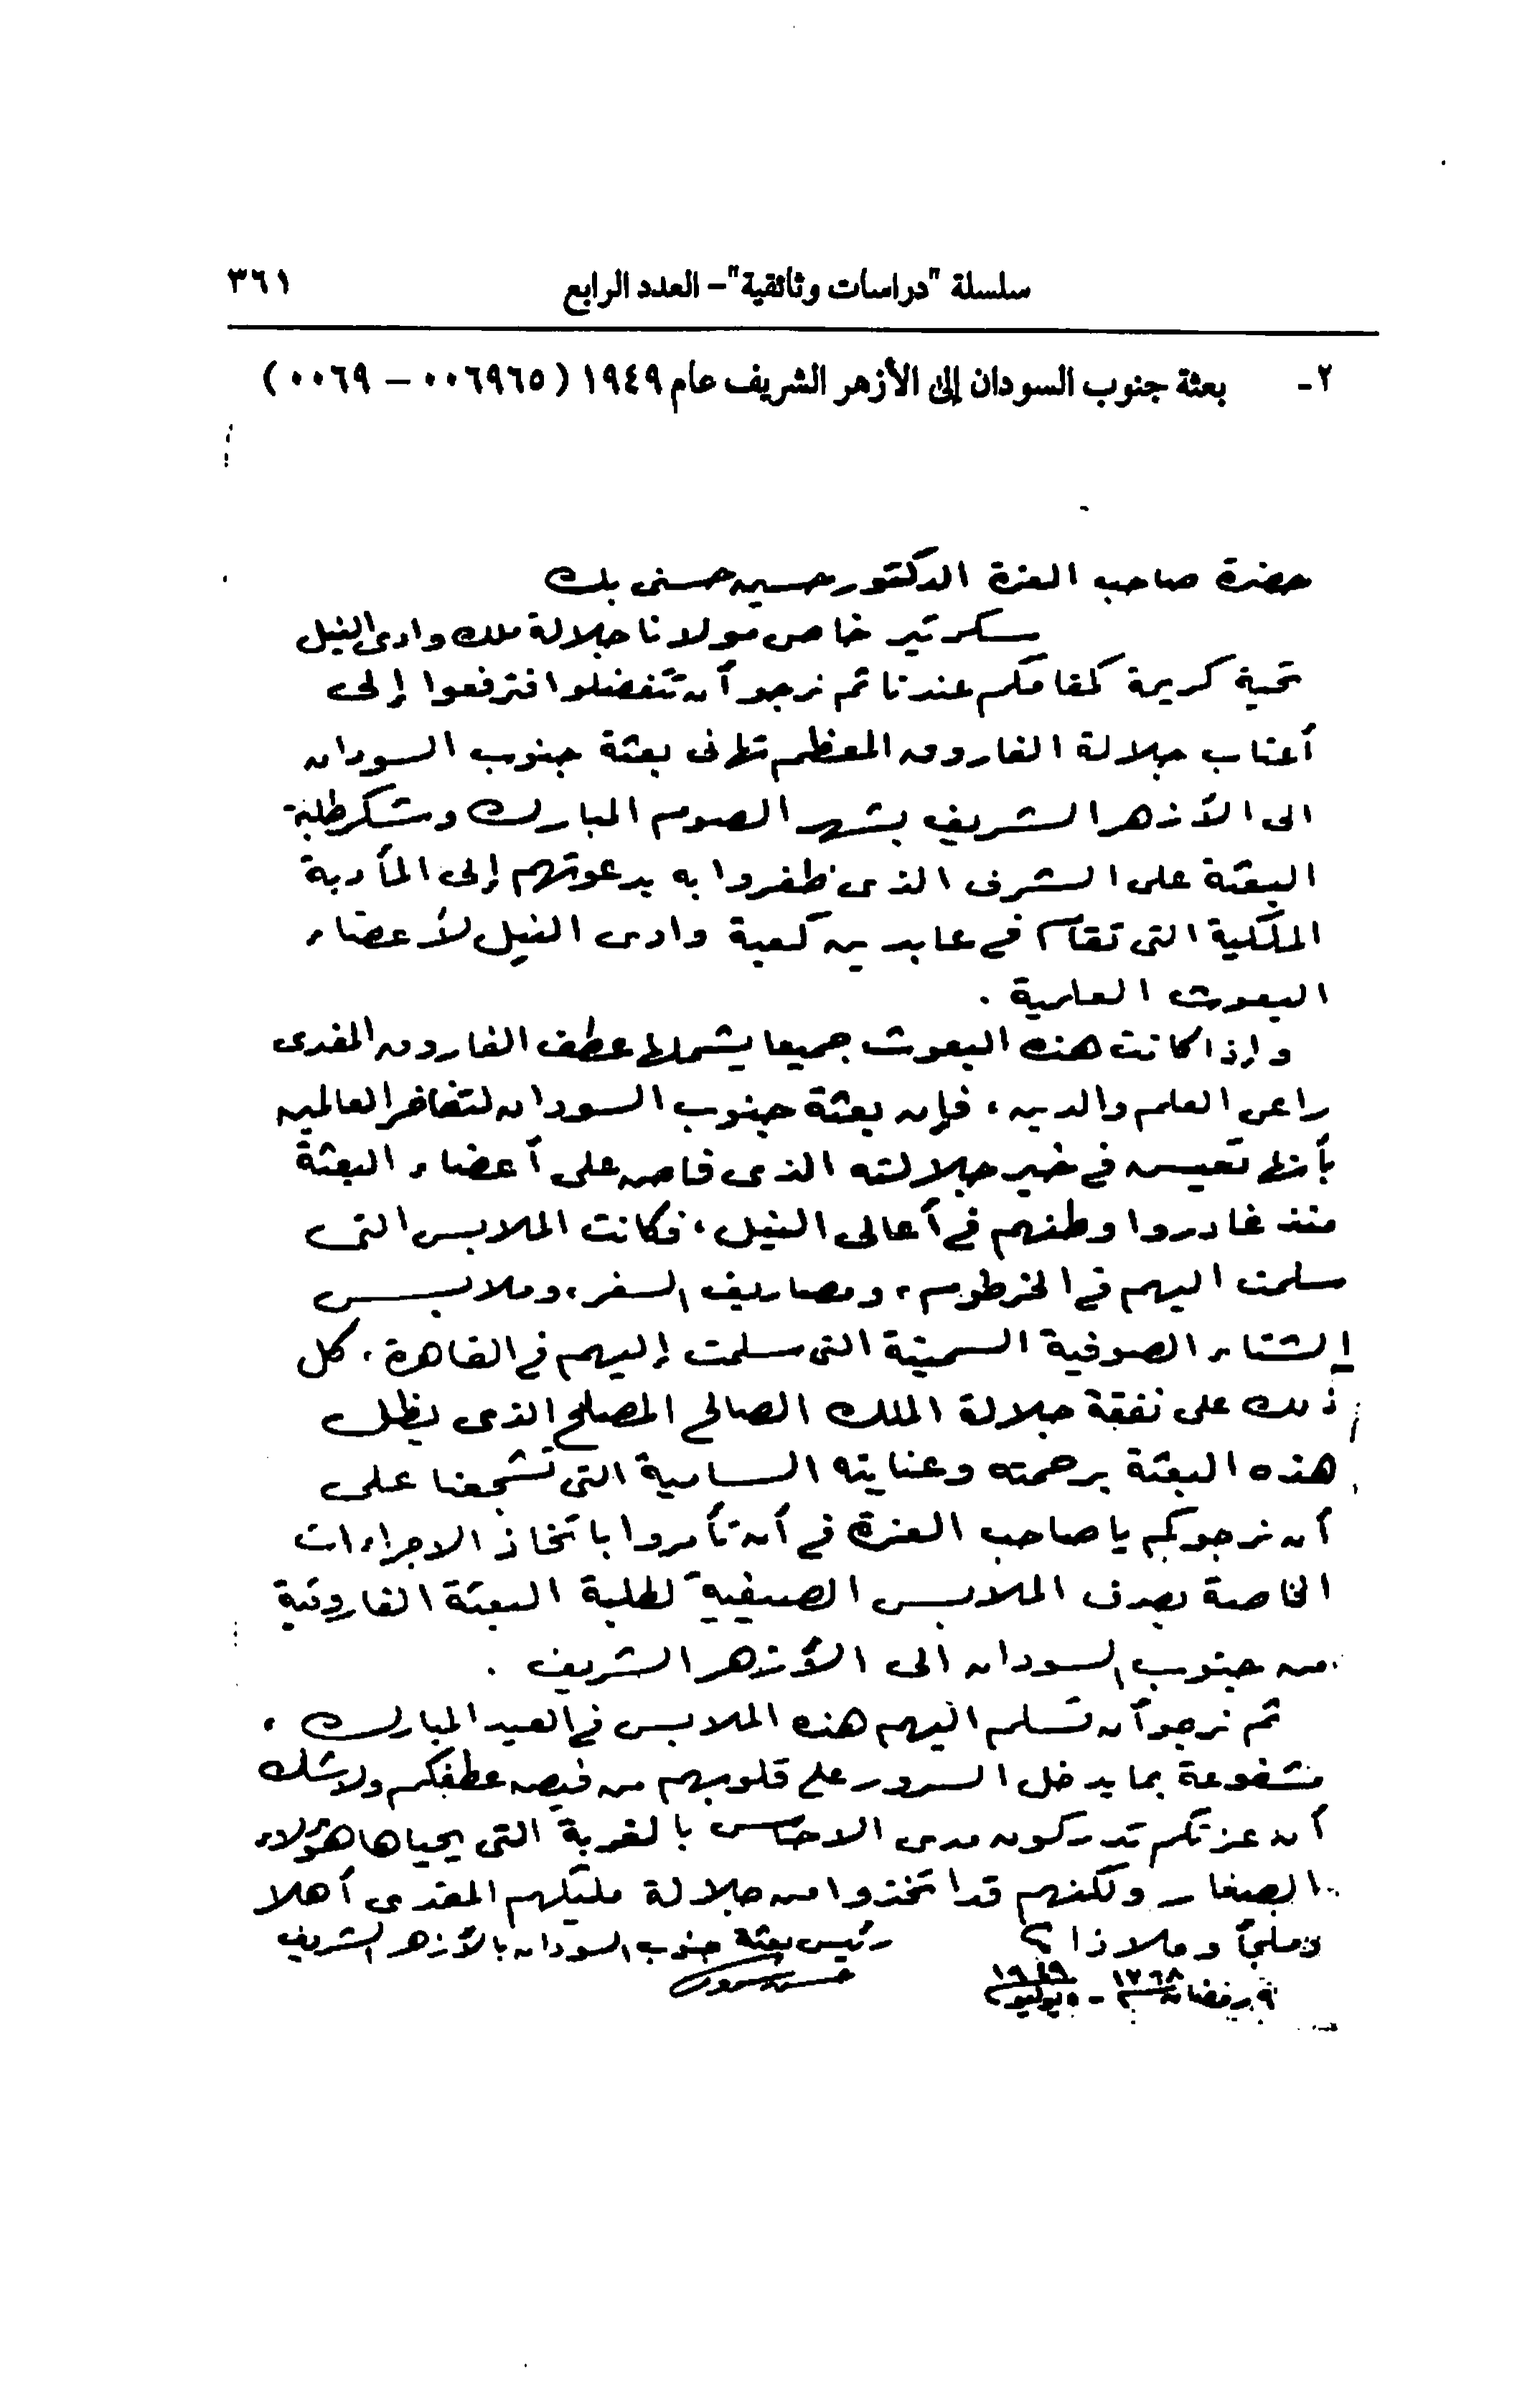 سلسلة "دراسات وثائقية"- العدد الرابع ٣٦١
٢- بعثة جنوب السودان إلى الأزهر الشريف عام ١٩٤٩ (٠٠٦٩٦٥ - ٠٠٦٩)
حضرة صاحب العزة الدكتور حسين حسنى بك
سكرتير خاص مولانا جلالة ملك وادى النيل
تحية كريمة كمقامكم عندنا ثم نرجو أن تتفضلوا فترفعوا إلى
أعتاب جلالة الفاروق المعظم تهانى بعثة جنوب السودان
الى الأزهر الشريف بشهر الصوم المبارك وشكر طلبة
البعثة على الشرف الذى ظفروا به بدعوتهم إلى المأدبة
الملكية التى تقام فى عابدين كعبة وادى النيل لأعضاء
البعوث العلمية .
وإذا كانت هذه البعوث جميعا يشملها عطف الفاروق المفدى
راعى العلم والدين، فإن بعثة جنوب السودان لتفاخر العالمين
بأنها تعيش فى خير جلالته الذى فاض على أعضاء البعثة
منذ غادروا وطنهم فى أعالى النيل، فكانت الملابس التى
سلمت اليهم فى الخرطوم، ومصاريف السفر، وملابس
الشتاء الصوفية الثمينة التى سلمت إليهم فى القاهرة. كل
ذلك على نفقة جلالة الملك الصالح المصلح الذى يظل
هذه البعثة برحمته وعنايته السامية التى تشجعنا على
أن نرجوكم يا صاحب العزة فى أن تأمروا باتخاذ الاجراءات
الخاصة بصرف الملابس الصيفية لطلبة البعثة الفاروقية
من جنوب السودان الى الأزهر الشريف .
ثم نرجو أن تسلم اليهم هذه الملابس فى العيد المبارك،
مشفوعة بما يدخل السرور على قلوبهم من فيض عطفكم ولا شك
أن عزتكم تدركون مدى الاحساس بالغربة التى يحياها هؤلاء
الصغار ولكنهم قد اتخذوا من جلالة مليكهم المفدى أهلا
وملجأ وملاذا ؟ رئيس بعثة جنوب السودان بالأزهر الشريف
٩ رمضان ١٣٦٨ - ٥ يوليو ١٩٤٩